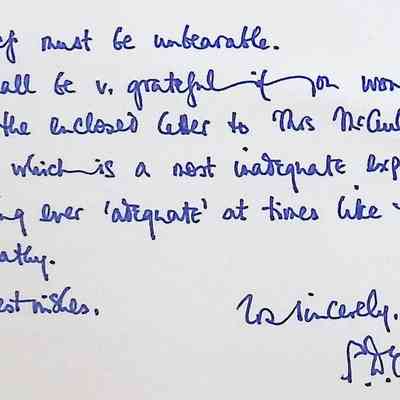 ef must be unbearable.
all be v. grateful if you won
the enclosed letter to Mrs McCul
which is a most inadequate exp
ng ever 'adequate' at times like
athy.
est wishes.
Yrs sincerely.